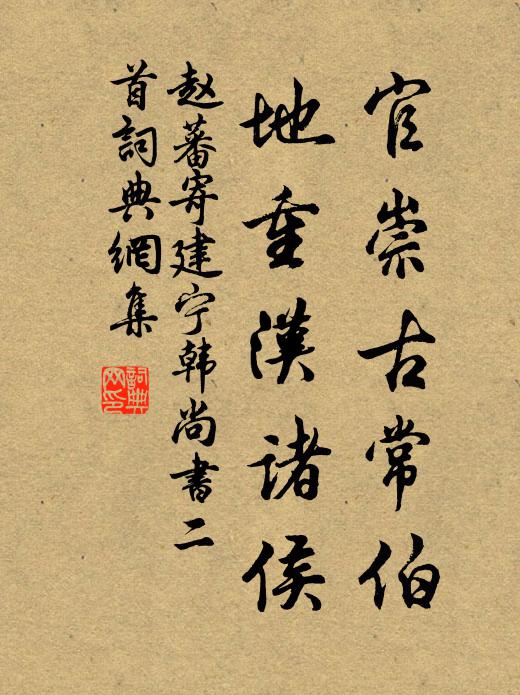 官崇古常伯
地重漢諸侯
赵蕃寄建宁韩尚書二
首詞典網集
詞典網印